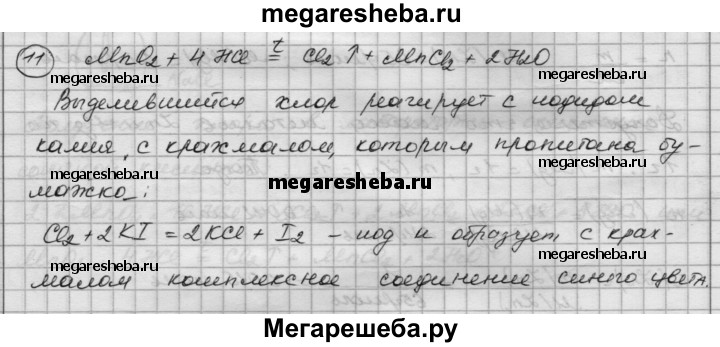 megaresheba.ru
11 MnO2 + 4 HCl t= Cl2 ↑ + MnCl2 + 2 H2O
megaresheba.ru megaresheba.ru
Выделившийся хлор реагирует с иодидом
калия, с крахмалом, которым пропитана бу-
megaresheba.ru megaresheba.ru
megaresheba.ru
мажко:
Cl2 + 2KI = 2KCl + I2 – иод и образует с крах-
megaresheba.ru megaresheba.ru
малом комплексное соединение синего цвета.
megaresheba.ru megaresheba.ru
Мегарешеба.ру